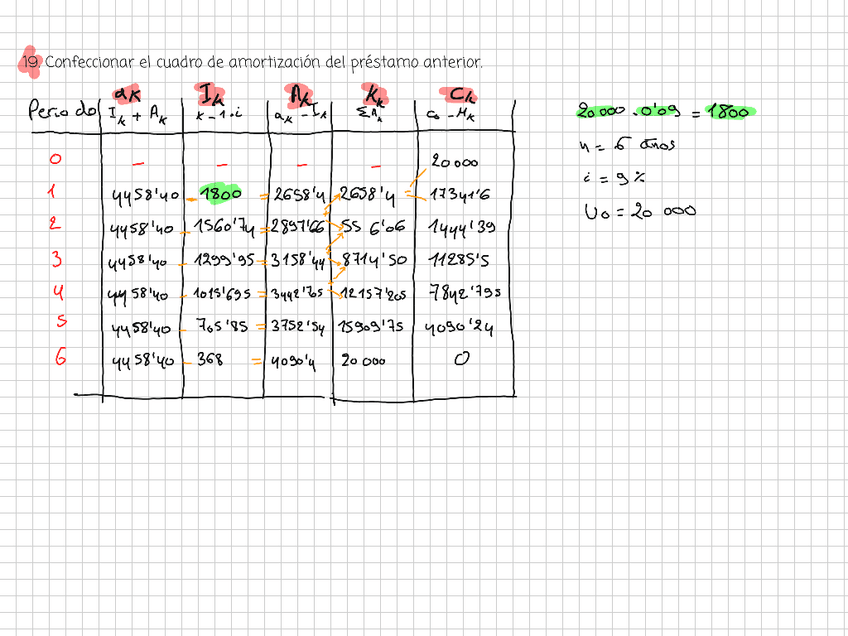 19. Confeccionar el cuadro de amortización del préstamo anterior.
aK IK AK KK CK
Periodo IK + AK K-1·i aK - IK ΣAK C0 - MK
0 - - - - 20000
1 4458'40 - 1800 = 2658'4 2658'4 17341'6
2 4458'40 - 1560'74 = 2897'66 55 6'06 1444'39
3 4458'40 - 1299'95 = 3158'44 8714'50 11285'5
4 4458'40 - 1015'695 = 3442'705 12157'205 7842'795
5 4458'40 - 705'85 = 3752'54 15909'75 4090'24
6 4458'40 - 368 = 4090'4 20 000 0
20 000 · 0'09 = 1800
n = 6 años
i = 9%
U0 = 20 000